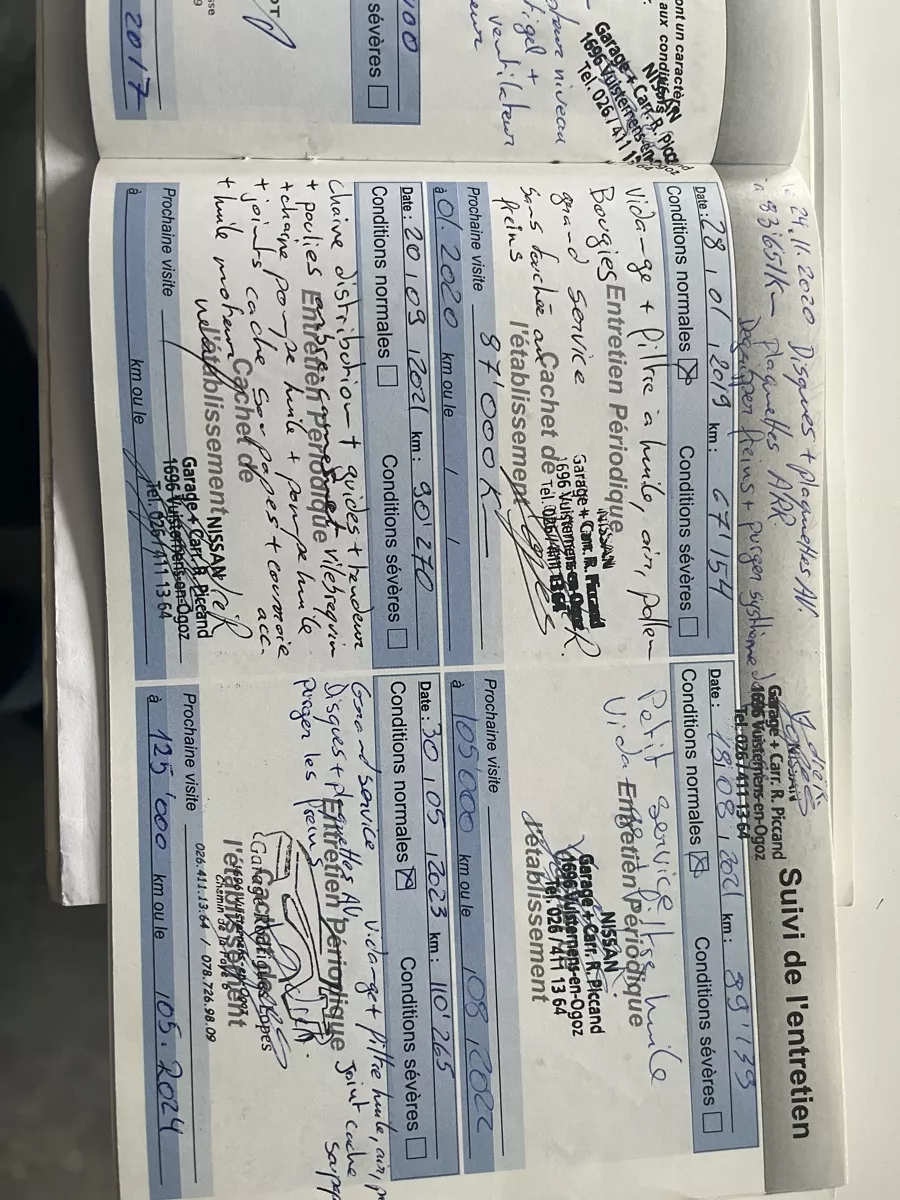 2017
sévères
ont un caractère
aux conditions
Tel. 026 / 411 13
niveau
ventilateur
Suivi de l'entretien
24.11.2020 Disques + plaquettes AV.
à 83'651K plaquettes ARR
freins + purger système
Garage + Carr. R. Piccand
1696 Vuisternens-en-Ogoz
Tel. 026 / 411 13 64
Date : 28,01,2019 km : 67'154
Conditions normales ☒ Conditions sévères ☐
Vidange + filtre à huile, air, pollen
Bougies Entretien Périodique
grand service
Cachet de
sans touchée au
l'établissement
freins
NISSAN
Garage + Carr. R. Piccand
1696 Vuisternens-en-Ogoz
Tel. 026 / 411 13 64
Prochaine visite 87'000K
à 01.2020 km ou le
Date : 18,08,2021 km : 89'139
Conditions normales ☒ Conditions sévères ☐
Petit service filtre huile
Vidange
Entretien Périodique
NISSAN
Garage + Carr. R. Piccand
1696 Vuisternens-en-Ogoz
Tel. 026 / 411 13 64
l'établissement
Prochaine visite
à 105000 km ou le 08,2022
Date : 20,09,2021 km : 90'270
Conditions normales ☐ Conditions sévères ☐
Chaîne distribution + guides + tendeur
+ poulies arbre came et vilebrequin
Entretien Périodique
+ chaîne pompe huile + pompe huile
+ joints cache soupapes + courroie acc
+ huile moteur
Cachet de
l'établissement
NISSAN
Garage + Carr. R. Piccand
1696 Vuisternens-en-Ogoz
Tel. 026 / 411 13 64
Prochaine visite
à km ou le
Date : 30,05,2023 km : 110'265
Conditions normales ☒ Conditions sévères ☐
Grand service Vidange + filtre huile, air, p
Disques + plaquettes AV joint cache
Entretien Périodique
purger les freins
Cachet de
l'établissement
1696 Vuisternens-en-Ogoz
026.411.13.64 / 078.726.98.09
Prochaine visite
à 125'000 km ou le 05.2024